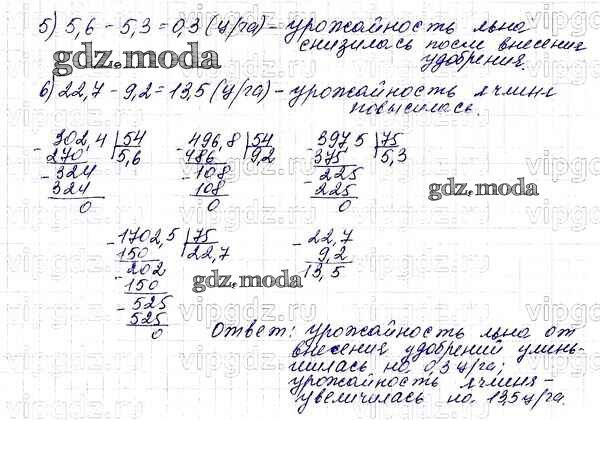 5) 5,6 - 5,3 = 0,3 (ц/га) - урожайность льна
снизилась после внесения
удобрения.
gdz.moda
6) 22,7 - 9,2 = 13,5 (ц/га) - урожайность ячменя
повысилась.
- 302,4 | 54   - 496,8 | 54   - 397,5 | 75
270   5,6   486   9,2   375   5,3
- 324   - 108   - 225
324   108   225
0   0   0
gdz.moda
- 1702,5 | 75   - 22,7
150   22,7   9,2
- 202   13,5
150
- 525
525
0
gdz.moda
Ответ: урожайность льна от
внесения удобрений умень-
шилась на 0,3 ц/га;
урожайность ячменя -
увеличилась на 13,5 ц/га.
vipgdz.ru